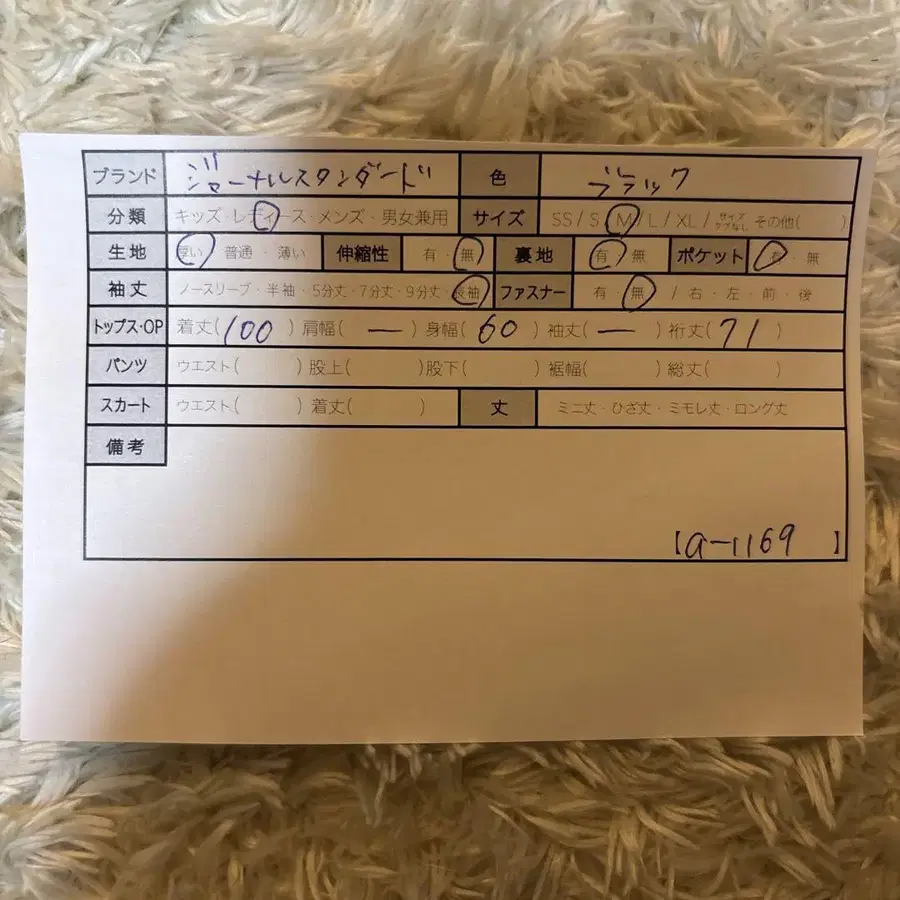 ブランド ジャーナルスタンダード 色 ブラック
分類 キッズ・レディース・メンズ・男女兼用 サイズ SS / S / M / L / XL / サイズタグなし その他( )
生地 厚い・普通・薄い 伸縮性 有・無 裏地 有・無 ポケット 有・無
袖丈 ノースリーブ・半袖・5分丈・7分丈・9分丈・長袖 ファスナー 有・無 / 右・左・前・後
トップス・OP 着丈(100) 肩幅( ー ) 身幅(60) 袖丈( ー ) 裄丈(71)
パンツ ウエスト( ) 股上( ) 股下( ) 裾幅( ) 総丈( )
スカート ウエスト( ) 着丈( ) 丈 ミニ丈・ひざ丈・ミモレ丈・ロング丈
備考
【a-1169 】